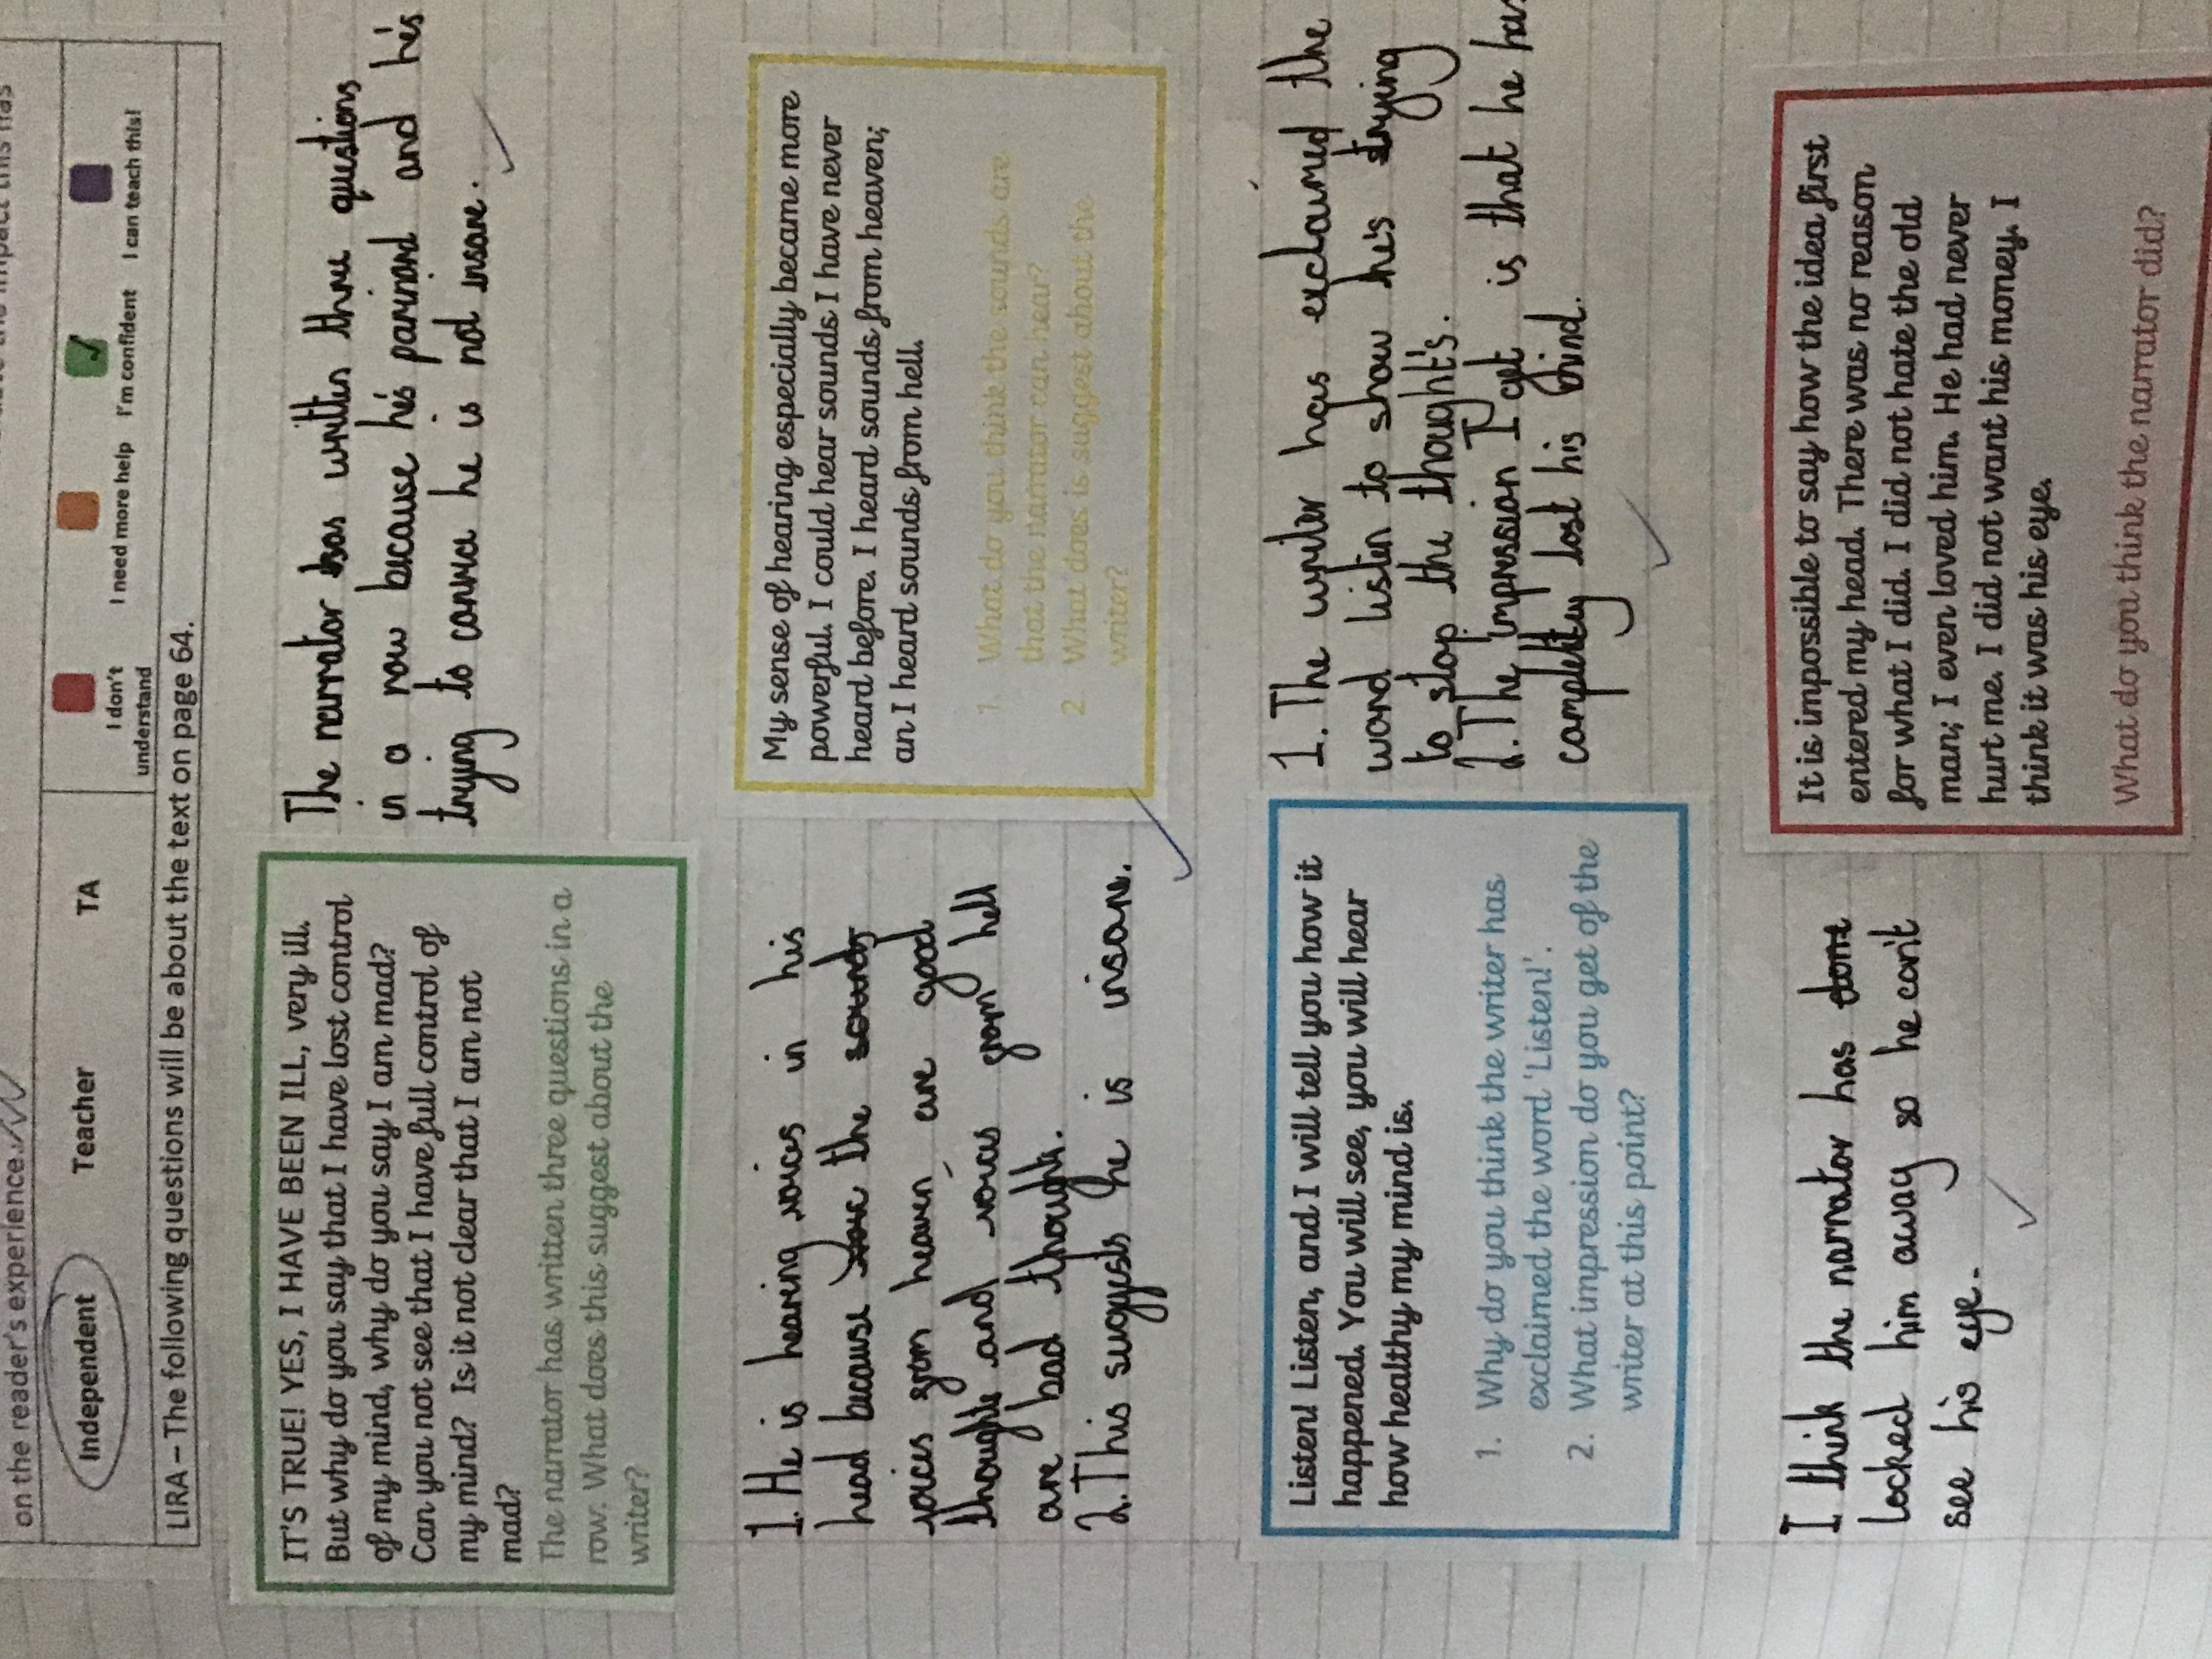 on the reader's experience.
Independent Teacher TA
I don't understand
I need more help
I'm confident
I can teach this!
LIRA – The following questions will be about the text on page 64.
IT'S TRUE! YES, I HAVE BEEN ILL, very ill.
But why do you say that I have lost control
of my mind, why do you say I am mad?
Can you not see that I have full control of
my mind? Is it not clear that I am not
mad?
The narrator has written three questions in a
row. What does this suggest about the
writer?
The narrator has written three questions
in a row because he's parinond and he's
trying to convice he is not insane.
1. He is hearing voices in his
head because the
voices from heaven are good
thoughts and voices from hell
are bad thoughts.
2. This suggests he is insane.
My sense of hearing especially became more
powerful. I could hear sounds I have never
heard before. I heard sounds from heaven;
an I heard sounds from hell.
1. What do you think the sounds are
that the narrator can hear?
2. What does is suggest about the
writer?
Listen! Listen, and I will tell you how it
happened. You will see, you will hear
how healthy my mind is.
1. Why do you think the writer has
exclaimed the word 'Listen!'.
2. What impression do you get of the
writer at this point?
1. The writer has exclaimed the
word listen to show he's trying
to stop the thought's.
2. The impression I get is that he has
completly lost his mind.
I think the narrator has
locked him away so he can't
see his eye.
It is impossible to say how the idea first
entered my head. There was no reason
for what I did. I did not hate the old
man; I even loved him. He had never
hurt me. I did not want his money. I
think it was his eye.
What do you think the narrator did?